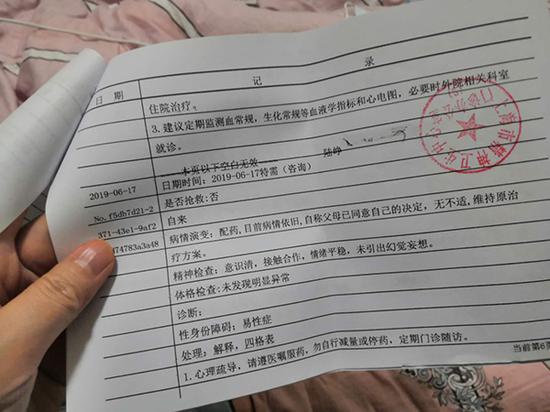 日期 记录
住院治疗。
3.建议定期监测血常规，生化常规等血液学指标和心电图，必要时外院相关科室
就诊。
本页以下空白无效
陆峥
2019-06-17 日期时间：2019-06-17特需（咨询）
No.f5db7d21-2 是否抢救:否
371-43e1-9af2 自来
74783a3a48 病情演变：配药,目前病情依旧,自称父母已同意自己的决定，无不适,维持原治
疗方案。
精神检查：意识清，接触合作，情绪平稳，未引出幻觉妄想。
体格检查:未发现明显异常
诊断:
性身份障碍；易性症
处理：解释，四格表
1.心理疏导，请遵医嘱服药，勿自行减量或停药，定期门诊随访。
当前第6页
市精神卫生中心